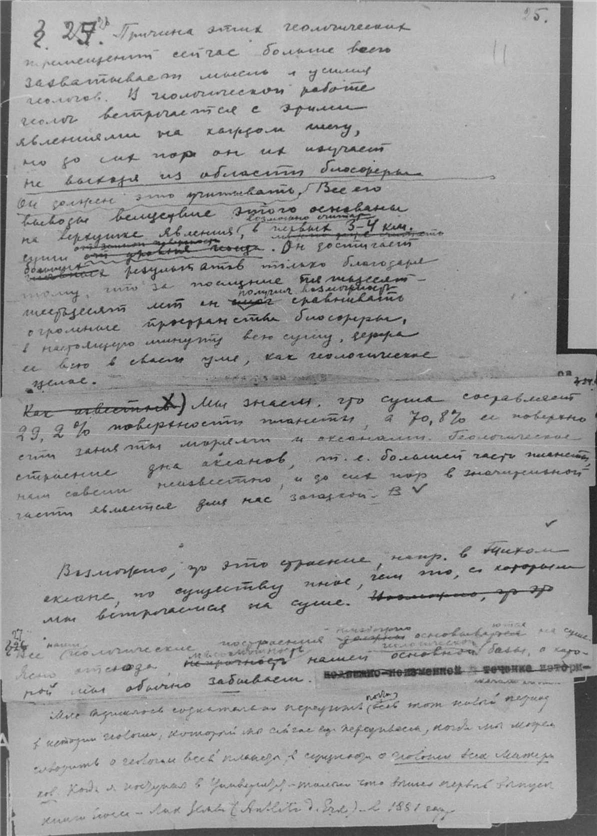 25.
§. 25. Причина этих геологических
перемещений сейчас больше всего
захватывает мысль и усилия
геологов. В геологической работе
геолог встречается с этими
явлениями на каждом шагу,
но до сих пор он их изучает
не выходя из области биосферы.
Он должен это учитывать. Все его
выводы вследствие этого основаны
на верхушке явления, в первых 3-4 км.
суши от уровня Он достигает
больших результатов только благодаря
тому, что за последние пятьдесят-
шестьдесят лет он получил возможность сравнивать
огромные пространства биосферы,
в настоящую минуту всю сушу, держа
ее всю в своем уме, как геологическое
целое.
Как известно Мы знаем, что суша составляет
29,2% поверхности планеты, а 70,8% ее поверхно
сти заняты морями и океанами. Геологическое
строение дна океанов, т.е. большей части планеты,
нам совсем неизвестно, и до сих пор в значительной
части является для нас загадкой. В
Возможно, что это строение, напр. в Тихом
океане, по существу иное, чем то, с которым
мы встречаемся на суше. Возможно, что
Все наши геологические построения основываются на суше
Ясно отсюда нашей основной базы, о кото-
рой мы обычно забываем. течение истори-
Мне пришлось сознательно пережить весь этот новый период
в истории геологии, который мы сейчас переживаем, когда мы можем
говорить о геологии всей планеты, в сущности о геологии всех матери
ков. Когда я поступил в Университет только что вышел первый выпуск
книги Зюсса - Лик Земли (Antlitz d. Erde) - в 1881 году